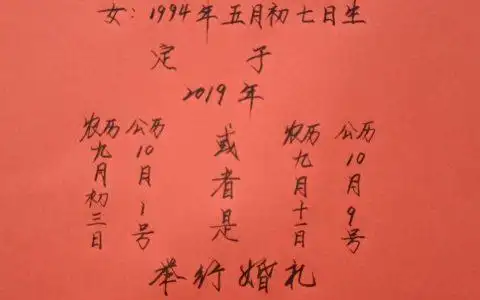 女：1994年五月初七日生
定于
2019年
农历九月初三日
公历10月1号
或者是
农历九月十一日
公历10月9号
举行婚礼